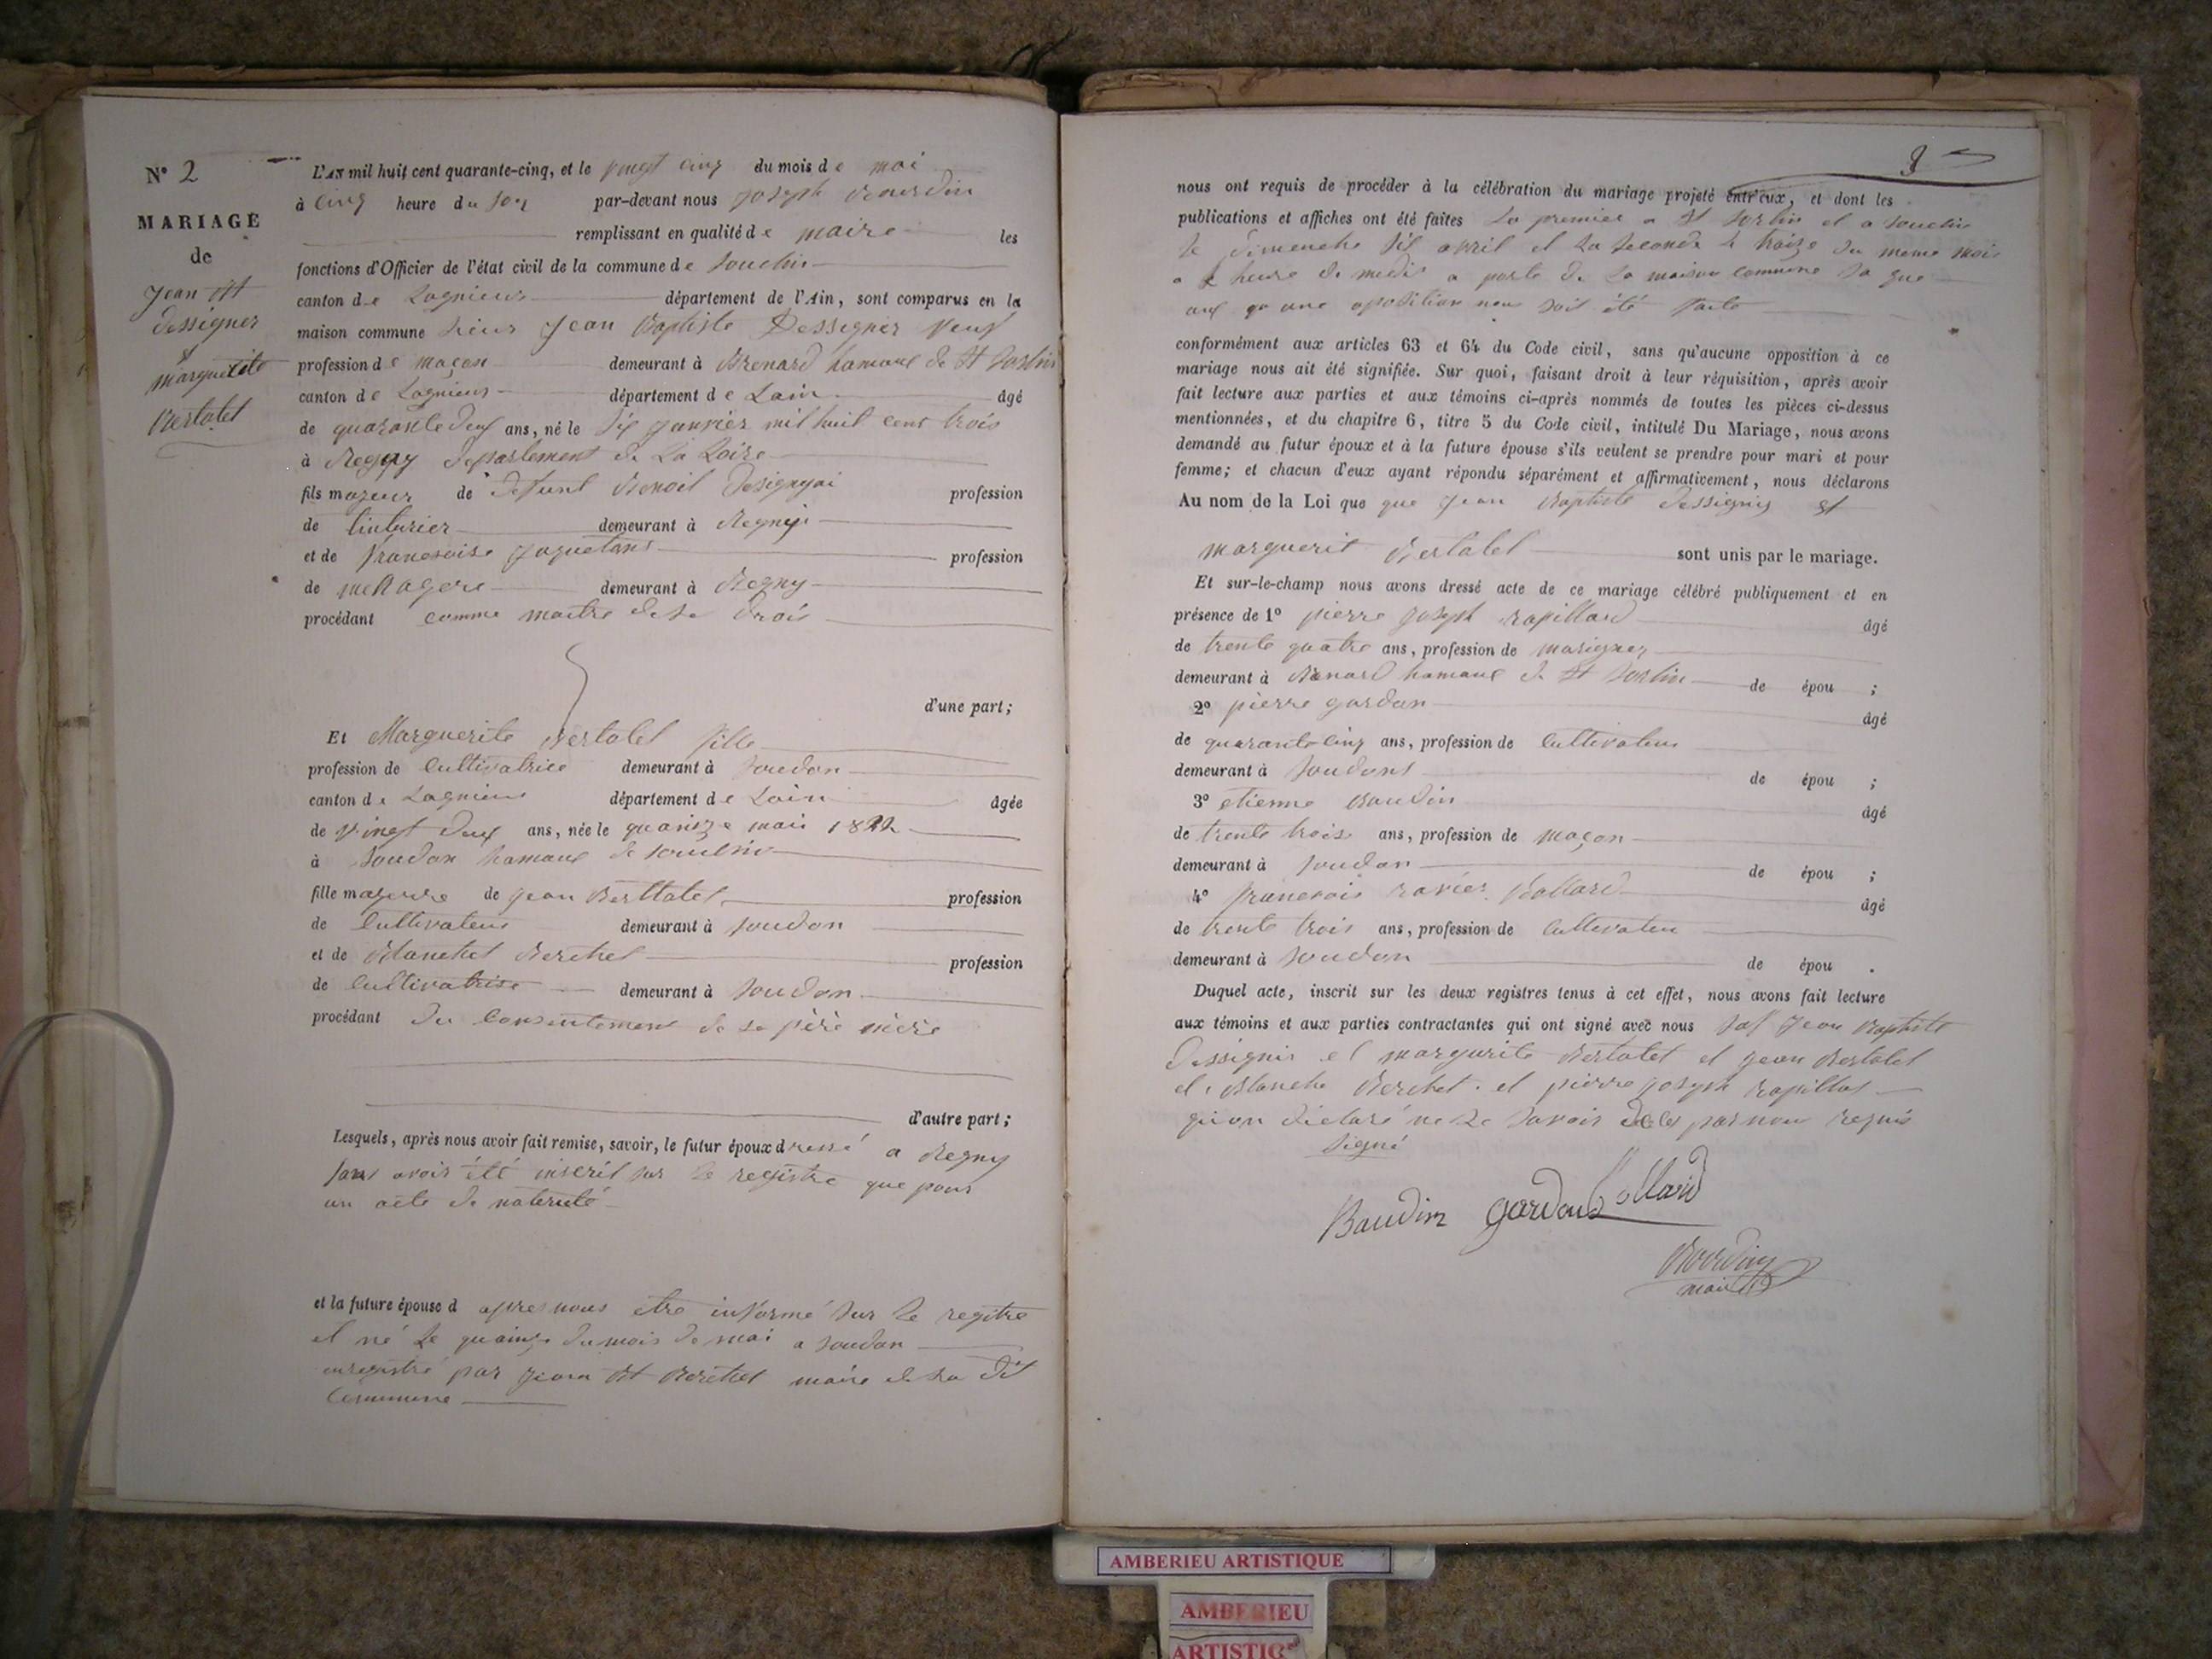 N° 2
MARIAGE
de
Jean Bt
dessigner
&
marguerite
Bertolet
L'AN mil huit cent quarante-cinq, et le vingt cinq du mois de mai
à cinq heure du soir par-devant nous joseph Bourdin
remplissant en qualité de maire les
fonctions d'Officier de l'état civil de la commune de souclin
canton de Lagnieux département de l'Ain, sont comparus en la
maison commune sieur Jean Baptiste Dessigner veuf
profession de maçon demeurant à Brenard hamaux de St sorlin
canton de Lagnieux département de Lain âgé
de quarante deux ans, né le six janvier mil huit cent trois
à Regny departement de La Loire
fils majeur de defunt Benoit
profession
de tinturier demeurant à Regny
et de francoise
profession
de menagere demeurant à Regny
procédant comme maitre de se drois
d'une part;
Et Marguerite Bertolet fille
profession de cultivatrice demeurant à soudon
canton de Lagnieux département de Lain âgée
de vingt deux ans, née le mai 1822
à soudon hamaux de souclin
fille majeure de jean Berttolet profession
de cultivateur demeurant à soudon
et de Blanchet Berchet profession
de cultivatrise demeurant à soudon
procédant du consentement de se père mère
d'autre part;
Lesquels, après nous avoir fait remise, savoir, le futur époux dressé a Regny
sans avoir été inscrit sur le registre que pour
un acte de
et la future épouse d apres nous etre informé sur le regitre
el né le quainze du mois de mai a soudon
enregistré par jean Bt Berchet maire de la dit
Commune
8
nous ont requis de procéder à la célébration du mariage projeté entr'eux, et dont les
publications et affiches ont été faites La premier a St sorlin et a souclin
le dimenche six avril et la seconde le traize du meme mois
a heure de midi a porte de la maison commune sa que
auqu'une oposition nou soit été faite
conformément aux articles 63 et 64 du Code civil, sans qu'aucune opposition à ce
mariage nous ait été signifiée. Sur quoi, faisant droit à leur réquisition, après avoir
fait lecture aux parties et aux témoins ci-après nommés de toutes les pièces ci-dessus
mentionnées, et du chapitre 6, titre 5 du Code civil, intitulé Du Mariage, nous avons
demandé au futur époux et à la future épouse s'ils veulent se prendre pour mari et pour
femme; et chacun d'eux ayant répondu séparément et affirmativement, nous déclarons
Au nom de la Loi que que jean Baptiste dessignis et
marguerit Bertolet sont unis par le mariage.
Et sur-le-champ nous avons dressé acte de ce mariage célébré publiquement et en
présence de 1° pierre joseph rapillard âgé
de trente quatre ans, profession de
demeurant à Brenard hamaux de St sorlin de épou ;
2° pierre gardon âgé
de quarante cinq ans, profession de cultivateur
demeurant à soudont de épou ;
3° etienne Baudin âgé
de trente trois ans, profession de maçon
demeurant à soudon de épou ;
4° francois ravier Bollard âgé
de trente trois ans, profession de cultivateu
demeurant à soudon de épou .
Duquel acte, inscrit sur les deux registres tenus à cet effet, nous avons fait lecture
aux témoins et aux parties contractantes qui ont signé avec nous sof jean Baptiste
dessignis et margurite Bertolet et jean Bertolet
et Blanche Berchet et pierre joseph rapillat
qui on déclaré ne le savoir de les par nou requis
signé
Baudin gardon Bollard
Bourdin
maire
AMBERIEU ARTISTIQUE
AMBERIEU
ARTISTIQ